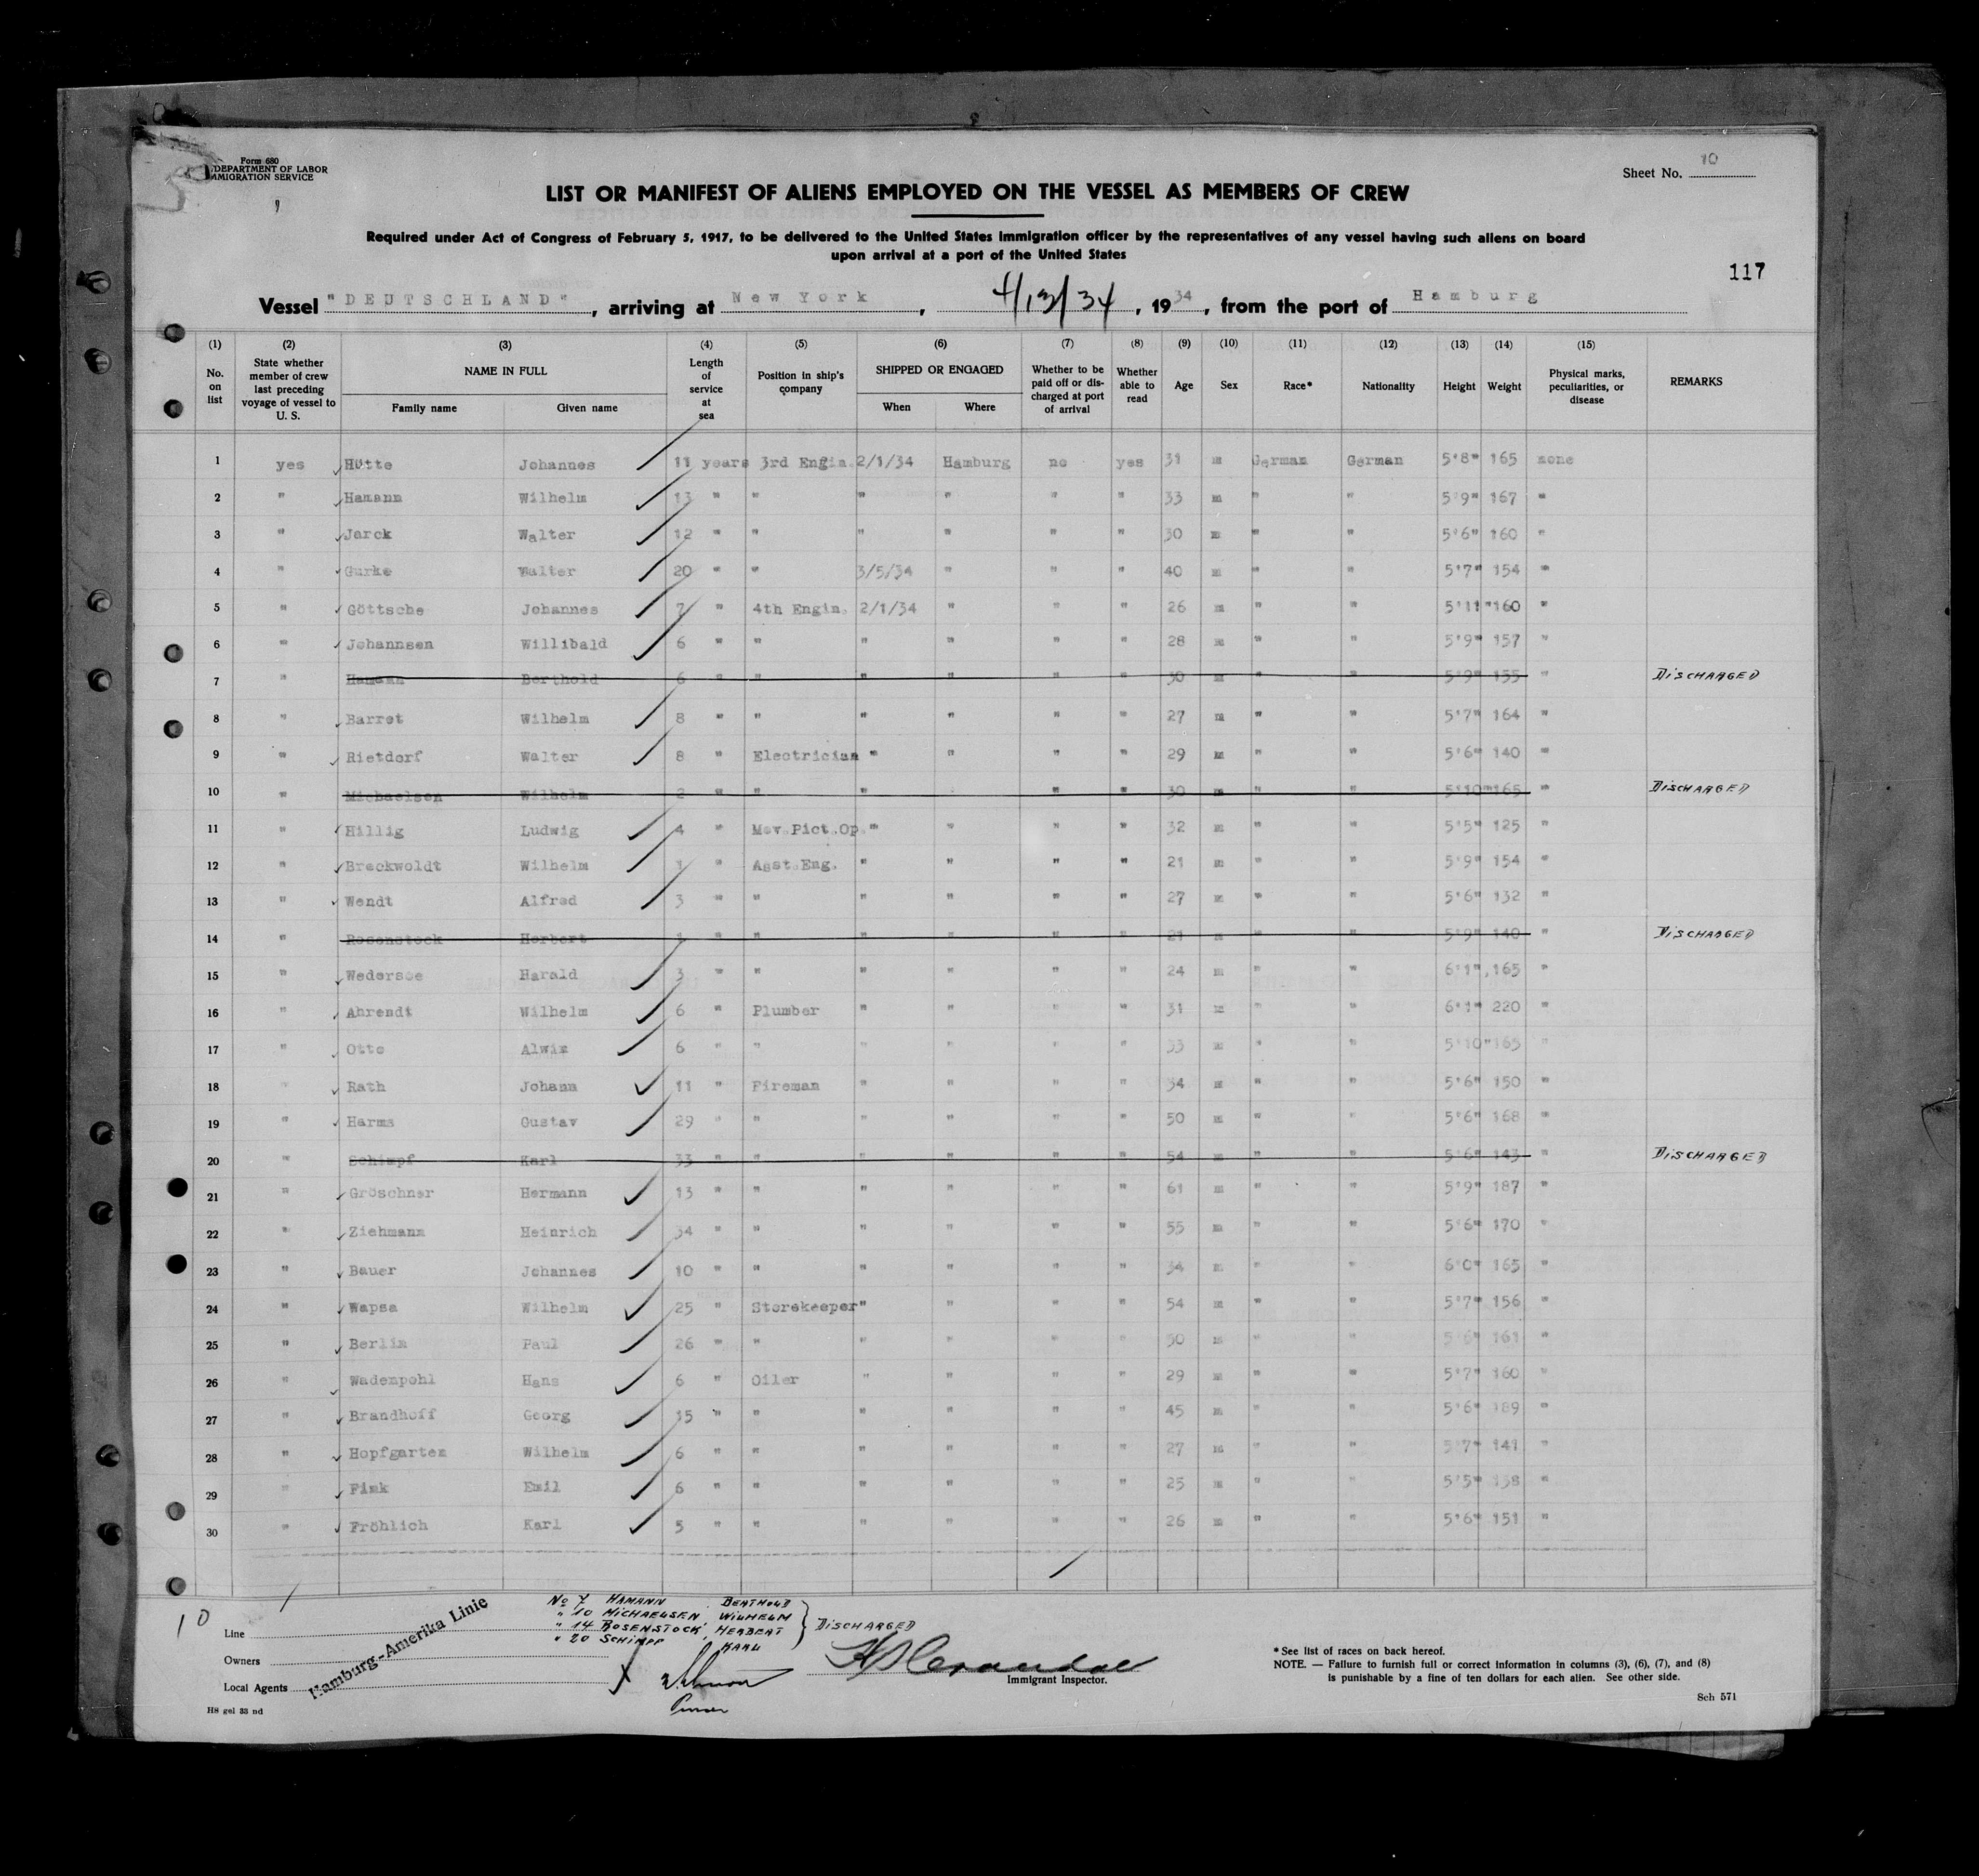 Form 680
DEPARTMENT OF LABOR
IMMIGRATION SERVICE
Sheet No. 10
LIST OR MANIFEST OF ALIENS EMPLOYED ON THE VESSEL AS MEMBERS OF CREW
Required under Act of Congress of February 5, 1917, to be delivered to the United States Immigration officer by the representatives of any vessel having such aliens on board
upon arrival at a port of the United States
117
Vessel "DEUTSCHLAND", arriving at New York, 4/13/34, 1934, from the port of Hamburg
(1) (2) (3) (4) (5) (6) (7) (8) (9) (10) (11) (12) (13) (14) (15)
No. on list | State whether member of crew last preceding voyage of vessel to U. S. | NAME IN FULL Family name Given name | Length of service at sea | Position in ship's company | SHIPPED OR ENGAGED When Where | Whether to be paid off or discharged at port of arrival | Whether able to read | Age | Sex | Race* | Nationality | Height | Weight | Physical marks, peculiarities, or disease | REMARKS
1 yes Hütte Johannes 11 years 3rd Engin. 2/1/34 Hamburg no yes 31 m German German 5'8" 165 none
2 " Hamann Wilhelm 13 " " " " " " 33 m " " 5'9" 167 "
3 " Jarck Walter 12 " " " " " " 30 m " " 5'6" 160 "
4 " Gurke Walter 20 " " 3/5/34 " " " 40 m " " 5'7" 154 "
5 " Göttsche Johannes 7 " 4th Engin. 2/1/34 " " " 26 m " " 5'11" 160 "
6 " Johannsen Willibald 6 " " " " " " 28 m " " 5'9" 157 "
7 " Hamann Berthold 6 " " " " " " 30 m " " 5'9" 155 " DISCHARGED
8 " Barret Wilhelm 8 " " " " " " 27 m " " 5'7" 164 "
9 " Rietdorf Walter 8 " Electrician " " " " 29 m " " 5'6" 140 "
10 " Michaelsen Wilhelm 2 " " " " " " 30 m " " 5'10" 165 " DISCHARGED
11 " Hillig Ludwig 4 " Mov.Pict.Op. " " " " 32 m " " 5'5" 125 "
12 " Breckwoldt Wilhelm 1 " Asst.Eng. " " " " 21 m " " 5'9" 154 "
13 " Wendt Alfred 3 " " " " " " 27 m " " 5'6" 132 "
14 " Rosenstock Herbert 1 " " " " " " 21 m " " 5'9" 140 " DISCHARGED
15 " Wedersoe Harald 3 " " " " " " 24 m " " 6'1" 165 "
16 " Ahrendt Wilhelm 6 " Plumber " " " " 31 m " " 6'1" 220 "
17 " Otto Alwin 6 " " " " " " 33 m " " 5'10" 165 "
18 " Rath Johann 11 " Fireman " " " " 34 m " " 5'6" 150 "
19 " Harms Gustav 29 " " " " " " 50 m " " 5'6" 168 "
20 " Schimpf Karl 33 " " " " " " 54 m " " 5'6" 143 " DISCHARGED
21 " Gröschner Hermann 13 " " " " " " 61 m " " 5'9" 187 "
22 " Ziehmann Heinrich 34 " " " " " " 55 m " " 5'6" 170 "
23 " Bauer Johannes 10 " " " " " " 34 m " " 6'0" 165 "
24 " Wapsa Wilhelm 25 " Storekeeper " " " " 54 m " " 5'7" 156 "
25 " Berlin Paul 26 " " " " " " 50 m " " 5'6" 161 "
26 " Wadenpohl Hans 6 " Oiler " " " " 29 m " " 5'7" 160 "
27 " Brandhoff Georg 15 " " " " " " 45 m " " 5'6" 189 "
28 " Hopfgarten Wilhelm 6 " " " " " " 27 m " " 5'7" 141 "
29 " Fink Emil 6 " " " " " " 25 m " " 5'5" 138 "
30 " Fröhlich Karl 5 " " " " " " 26 m " " 5'6" 151 "
10
No 7 HAMANN BERTHOLD
" 10 MICHAELSEN, WILHELM
" 14 ROSENSTOCK, HERBERT
" 20 SCHIMPF KARL
DISCHARGED
Line
Owners
Local Agents
Hamburg-Amerika Linie
Purser
Immigrant Inspector.
* See list of races on back hereof.
NOTE. — Failure to furnish full or correct information in columns (3), (6), (7), and (8)
is punishable by a fine of ten dollars for each alien. See other side.
HS gel 33 nd
Sch 571